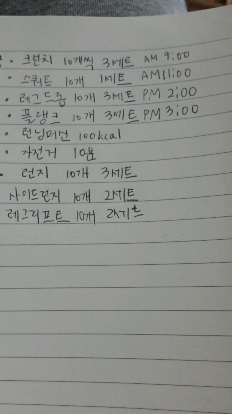 · 크런치 10개씩 3세트 AM 9:00
· 스쿼트 10개 1세트 AM 11:00
· 레그드롭 10개 3세트 PM 2:00
· 플랭크 10개 3세트 PM 3:00
· 런닝머신 100kcal
· 자전거 10분
· 런지 10개 3세트
사이드런지 10개 2세트
레그리프트 10개 2세트